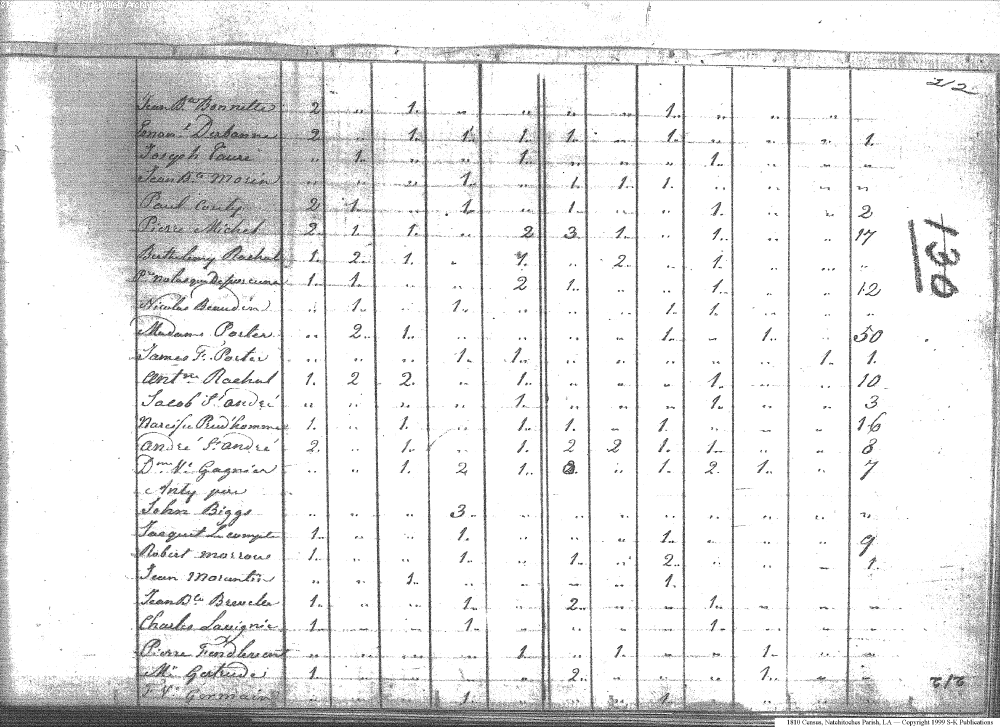 212
Jean Bte Bonnette 2 .. 1. .. .. .. .. 1. .. .. ..
Derbanne 2 .. 1. 1. 1. 1. .. 1. .. .. .. 1.
Joseph Faure .. 1. .. .. 1. .. .. .. 1. .. .. ..
Jean Bte Morin .. .. .. 1. .. 1. 1. 1. .. .. .. ..
Paul 2 1. .. 1. .. 1. .. .. 1. .. .. 2
Pierre Michel 2. 1 1. .. 2 3. 1. .. 1. .. .. 17
Berthelemy Rachal 1. 2. 1. .. 1. .. 2. .. 1. .. .. ..
1. 1. .. .. 2 1. .. .. 1. .. .. 12
Nicolas Beaudin .. 1. .. 1. .. .. .. 1. 1. .. .. ..
Madame Porter .. 2. 1. .. .. .. .. 1. .. 1. .. 50
James F. Porter .. .. .. 1. 1. .. .. .. .. .. 1. 1.
Antne Rachal 1. 2 2. .. 1. .. .. .. 1. .. .. 10
Jacob St André .. .. .. .. 1. .. .. .. 1. .. .. 3
Narcisse Prudhomme 1. .. 1. .. 1. 1. .. 1. .. .. .. 16
André St André 2. .. 1. .. 1. 2 2 1. 1. .. .. 8
Dme Ve Gagnier .. .. 1. 2 1. .. 1. 2. 1. .. 7
Anty
John Biggs .. .. .. 3. .. .. .. .. .. .. .. ..
Jacquit Lecompte 1. .. .. 1. .. .. .. 1. .. .. .. 9
Robert Morrow 1. .. .. 1. .. 1. .. 2. .. .. .. 1.
Jean .. .. 1. .. .. .. .. 1.
Jean Bte Brevelle 1. .. .. 1. .. 2. .. .. 1. .. .. ..
Charles Lavignie 1. .. .. 1. .. .. .. .. 1. .. .. ..
Pierre .. .. .. .. 1. .. 1. .. .. 1. .. ..
Me Gertrude 1. .. .. .. .. 2. .. .. .. 1. .. ..
Germain .. .. .. 1. .. .. .. 1. .. .. .. ..
130
212
1810 Census, Natchitoches Parish, LA — Copyright 1999 S-K Publications